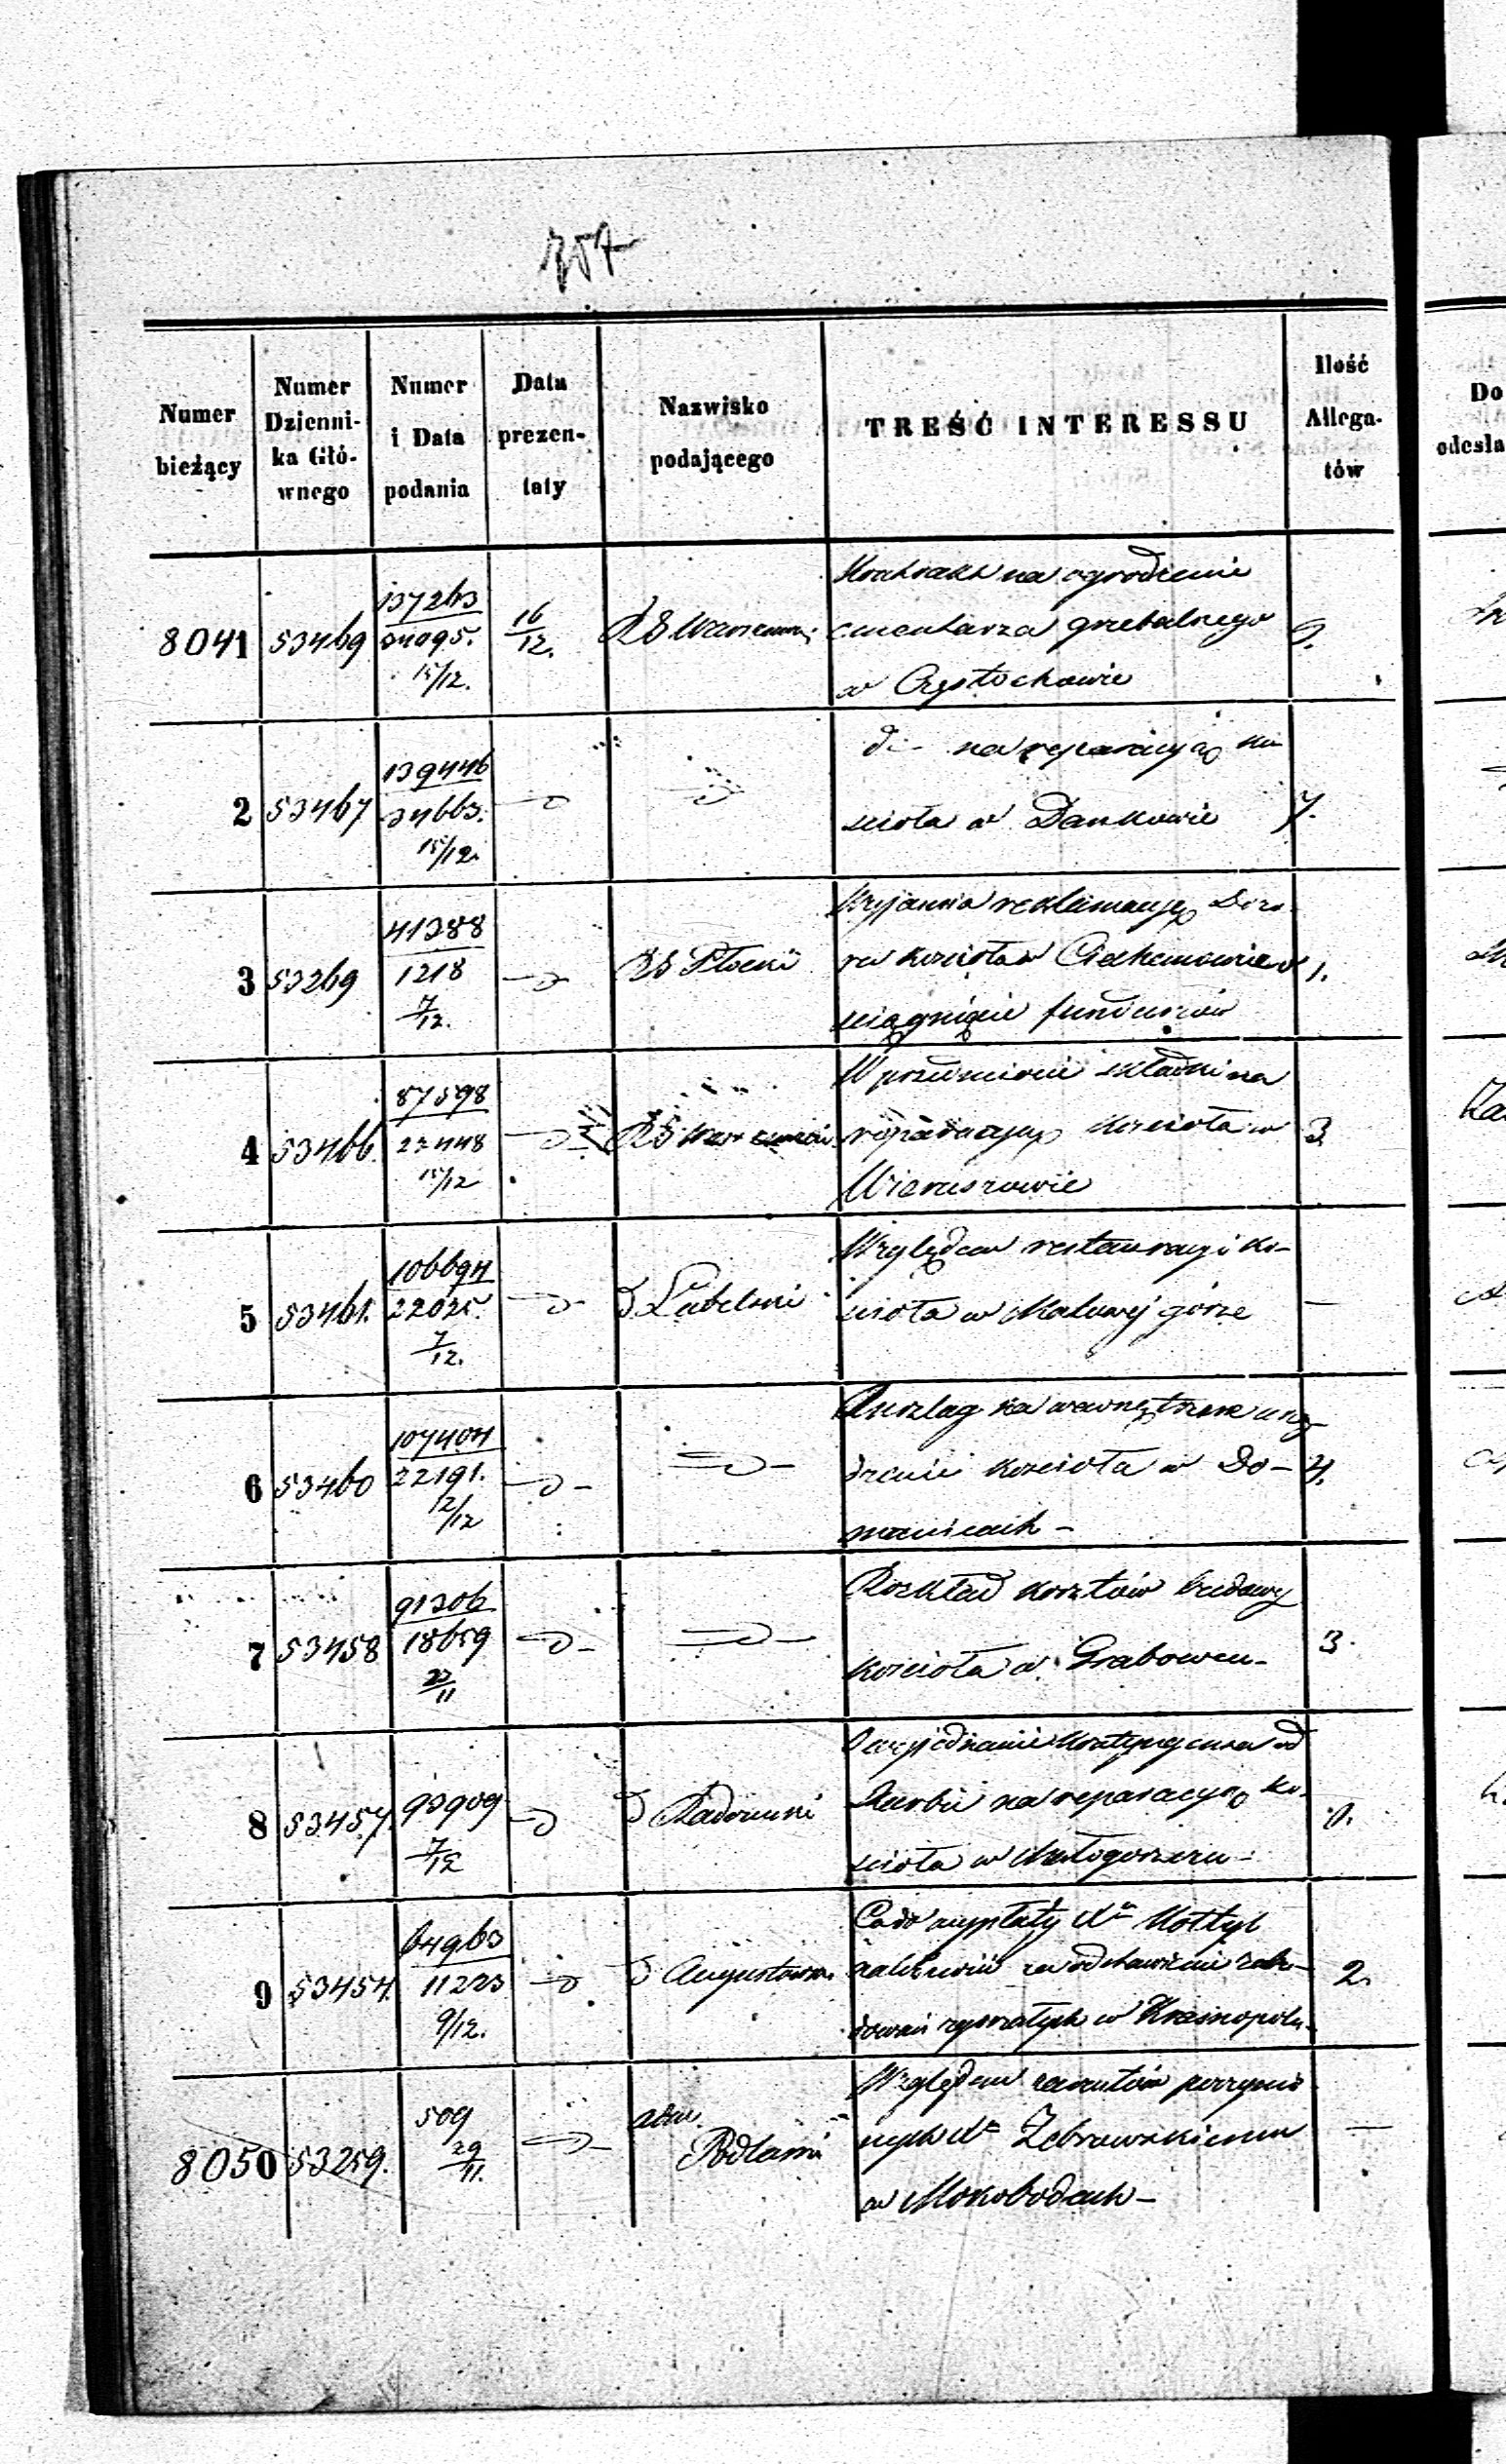 Numer bieżący
Numer Dzienni-ka Głó-wnego
Numer i Data podania
Data prezen-taty
Nazwisko podającego
TREŚĆ INTERESSU
Ilość Allega-tów
Do odesła
8041 53469 137263 34095. 15/12. 16/12. RG Warszawski
Kontrakt na ogrodzenie
cmentarza grzebalnego 9.
w Częstochowie
2 53467 139446 34663. 15/12.
do - na reparacyją ko
ścioła w Dankowie 7.
3 53269 41388 1218 7/12. RG Płocki
reklamacyę Dozo-
ru kościoła w Ciechanowie o 1.
ściągnięcie funduszów
4 53466. 87598 23448 15/12 RG Warszawski
W przedmiocie składki na
reparacyę kościoła w 3.
Wieruszowie
5 53461. 106694 22025. 7/12. D Lubelski
Względem restauracyi ko-
ścioła w Malowej górze —
6 53460 107404 22191. 12/12
Anszlag na wewnętrzne urzą-
dzenie kościoła w Do- 4.
manicach -
7 53458 91306 18659 22/11
Rozkład kosztów budowy
kościoła w Grabowcu - 3.
8 53457. 93909 7/12 D Radomski
od
Skarbu na reparacyą ko-
ścioła w Małogoszczu -
9 53454. 64963 11223 9/12. D Augustowski
Co do wypłaty
za odstawienie zabu-
dowań w Krasnopolu - 2.
8050 53259. 509 29/11. Podlaski
Względem zarzutów poczynio
nych Żebrowskiemu —
w Mokobodach -